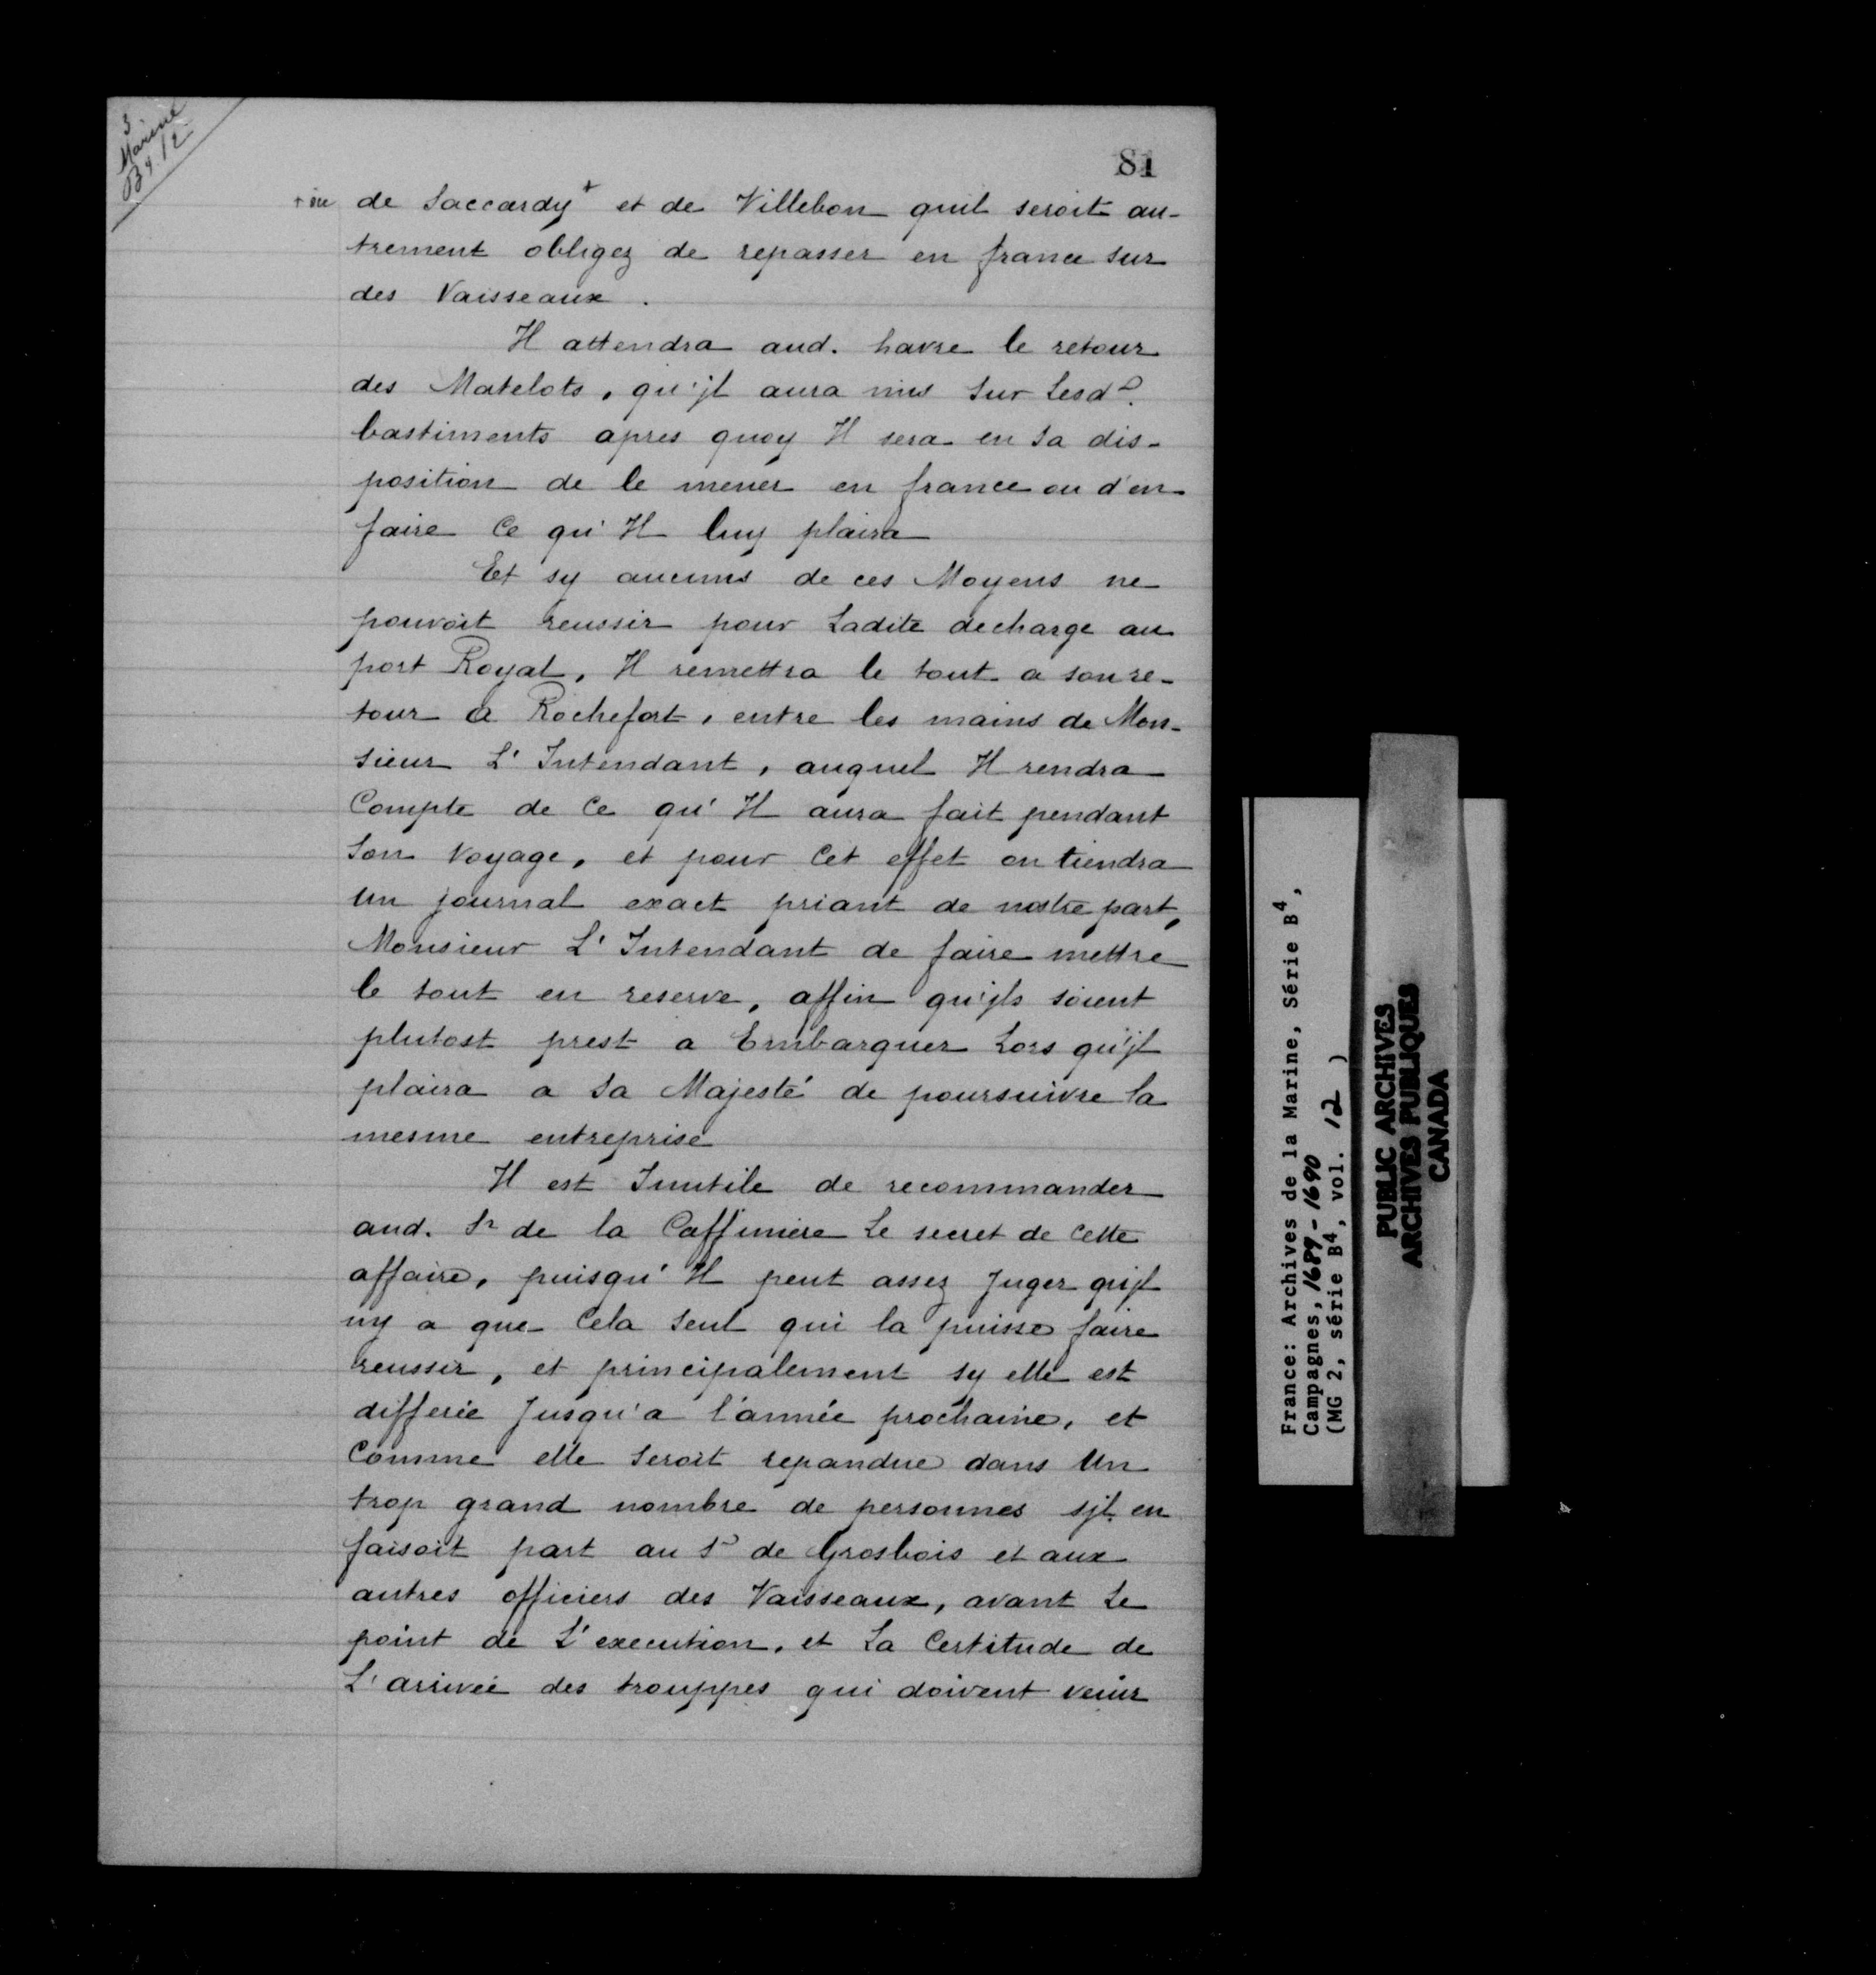 3.
Marine
B4.12
81
+ ou de Saccardy + et de Villebon quil seroit au-
trement obligez de repasser en france sur
des Vaisseaux.
Il attendra aud. havre le retour
des Matelots, qu'jl aura mis Sur Lesds.
bastiments apres quoy Il sera en Sa dis-
position de le mener en france ou d'en
faire Ce qu'Il luy plaira
Et sy aucuns de ces Moyens ne
pouvoit reussir pour Ladite decharge au
port Royal, Il remettra le tout a son re-
tour a Rochefort, entre les mains de Mon-
sieur L'Intendant, auquel Il rendra
Compte de Ce qu'Il aura fait pendant
Son Voyage, et pour Cet effet en tiendra
Un journal exact priant de nostre part,
Monsieur L'Intendant de faire mettre
le tout en reserve, affin qu'jls soient
plutost prest a Embarquer Lors qu'jl
plaira a Sa Majesté de poursuivre la
mesme entreprise
Il est Inutile de recommander
aud. Sr de la Caffiniere Le secret de Cette
affaire, puisqu'Il peut assez Juger qujl
ny a que Cela Seul qui la puisse faire
reussir, et principalement sy elle est
differée Jusqu'a l'année prochaine, et
Comme elle Seroit repandue dans Un
trop grand nombre de personnes sjl en
faisoit part au Sr de Grosbois et aux
autres officiers des Vaisseaux, avant Le
point de L'execution, et La Certitude de
L'arrivée des trouppes qui doivent venir
France: Archives de la Marine, Série B4,
Campagnes, 1689-1690
(MG 2, série B4, vol. 12 )
PUBLIC ARCHIVES
ARCHIVES PUBLIQUES
CANADA